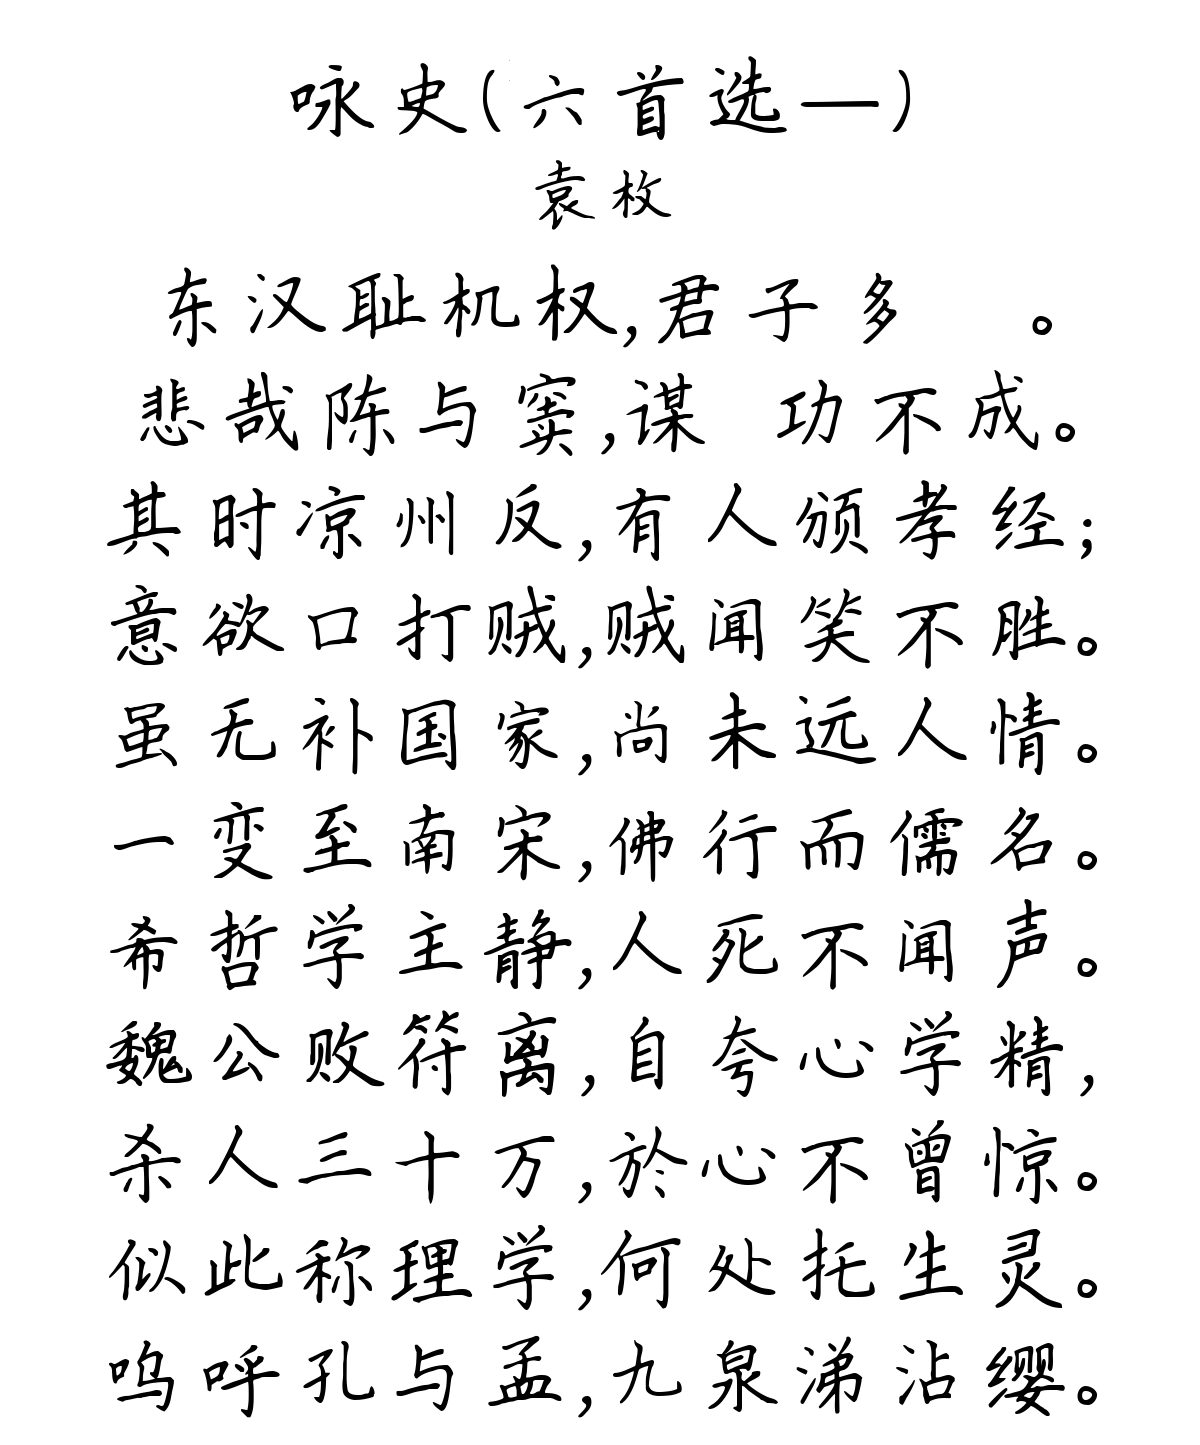 咏史(六首选一)
袁枚
东汉耻机权,君子多 。
悲哉陈与窦,谋 功不成。
其时凉州反,有人颁孝经;
意欲口打贼,贼闻笑不胜。
虽无补国家,尚未远人情。
一变至南宋,佛行而儒名。
希哲学主静,人死不闻声。
魏公败符离,自夸心学精,
杀人三十万,於心不曾惊。
似此称理学,何处托生灵。
呜呼孔与孟,九泉涕沾缨。